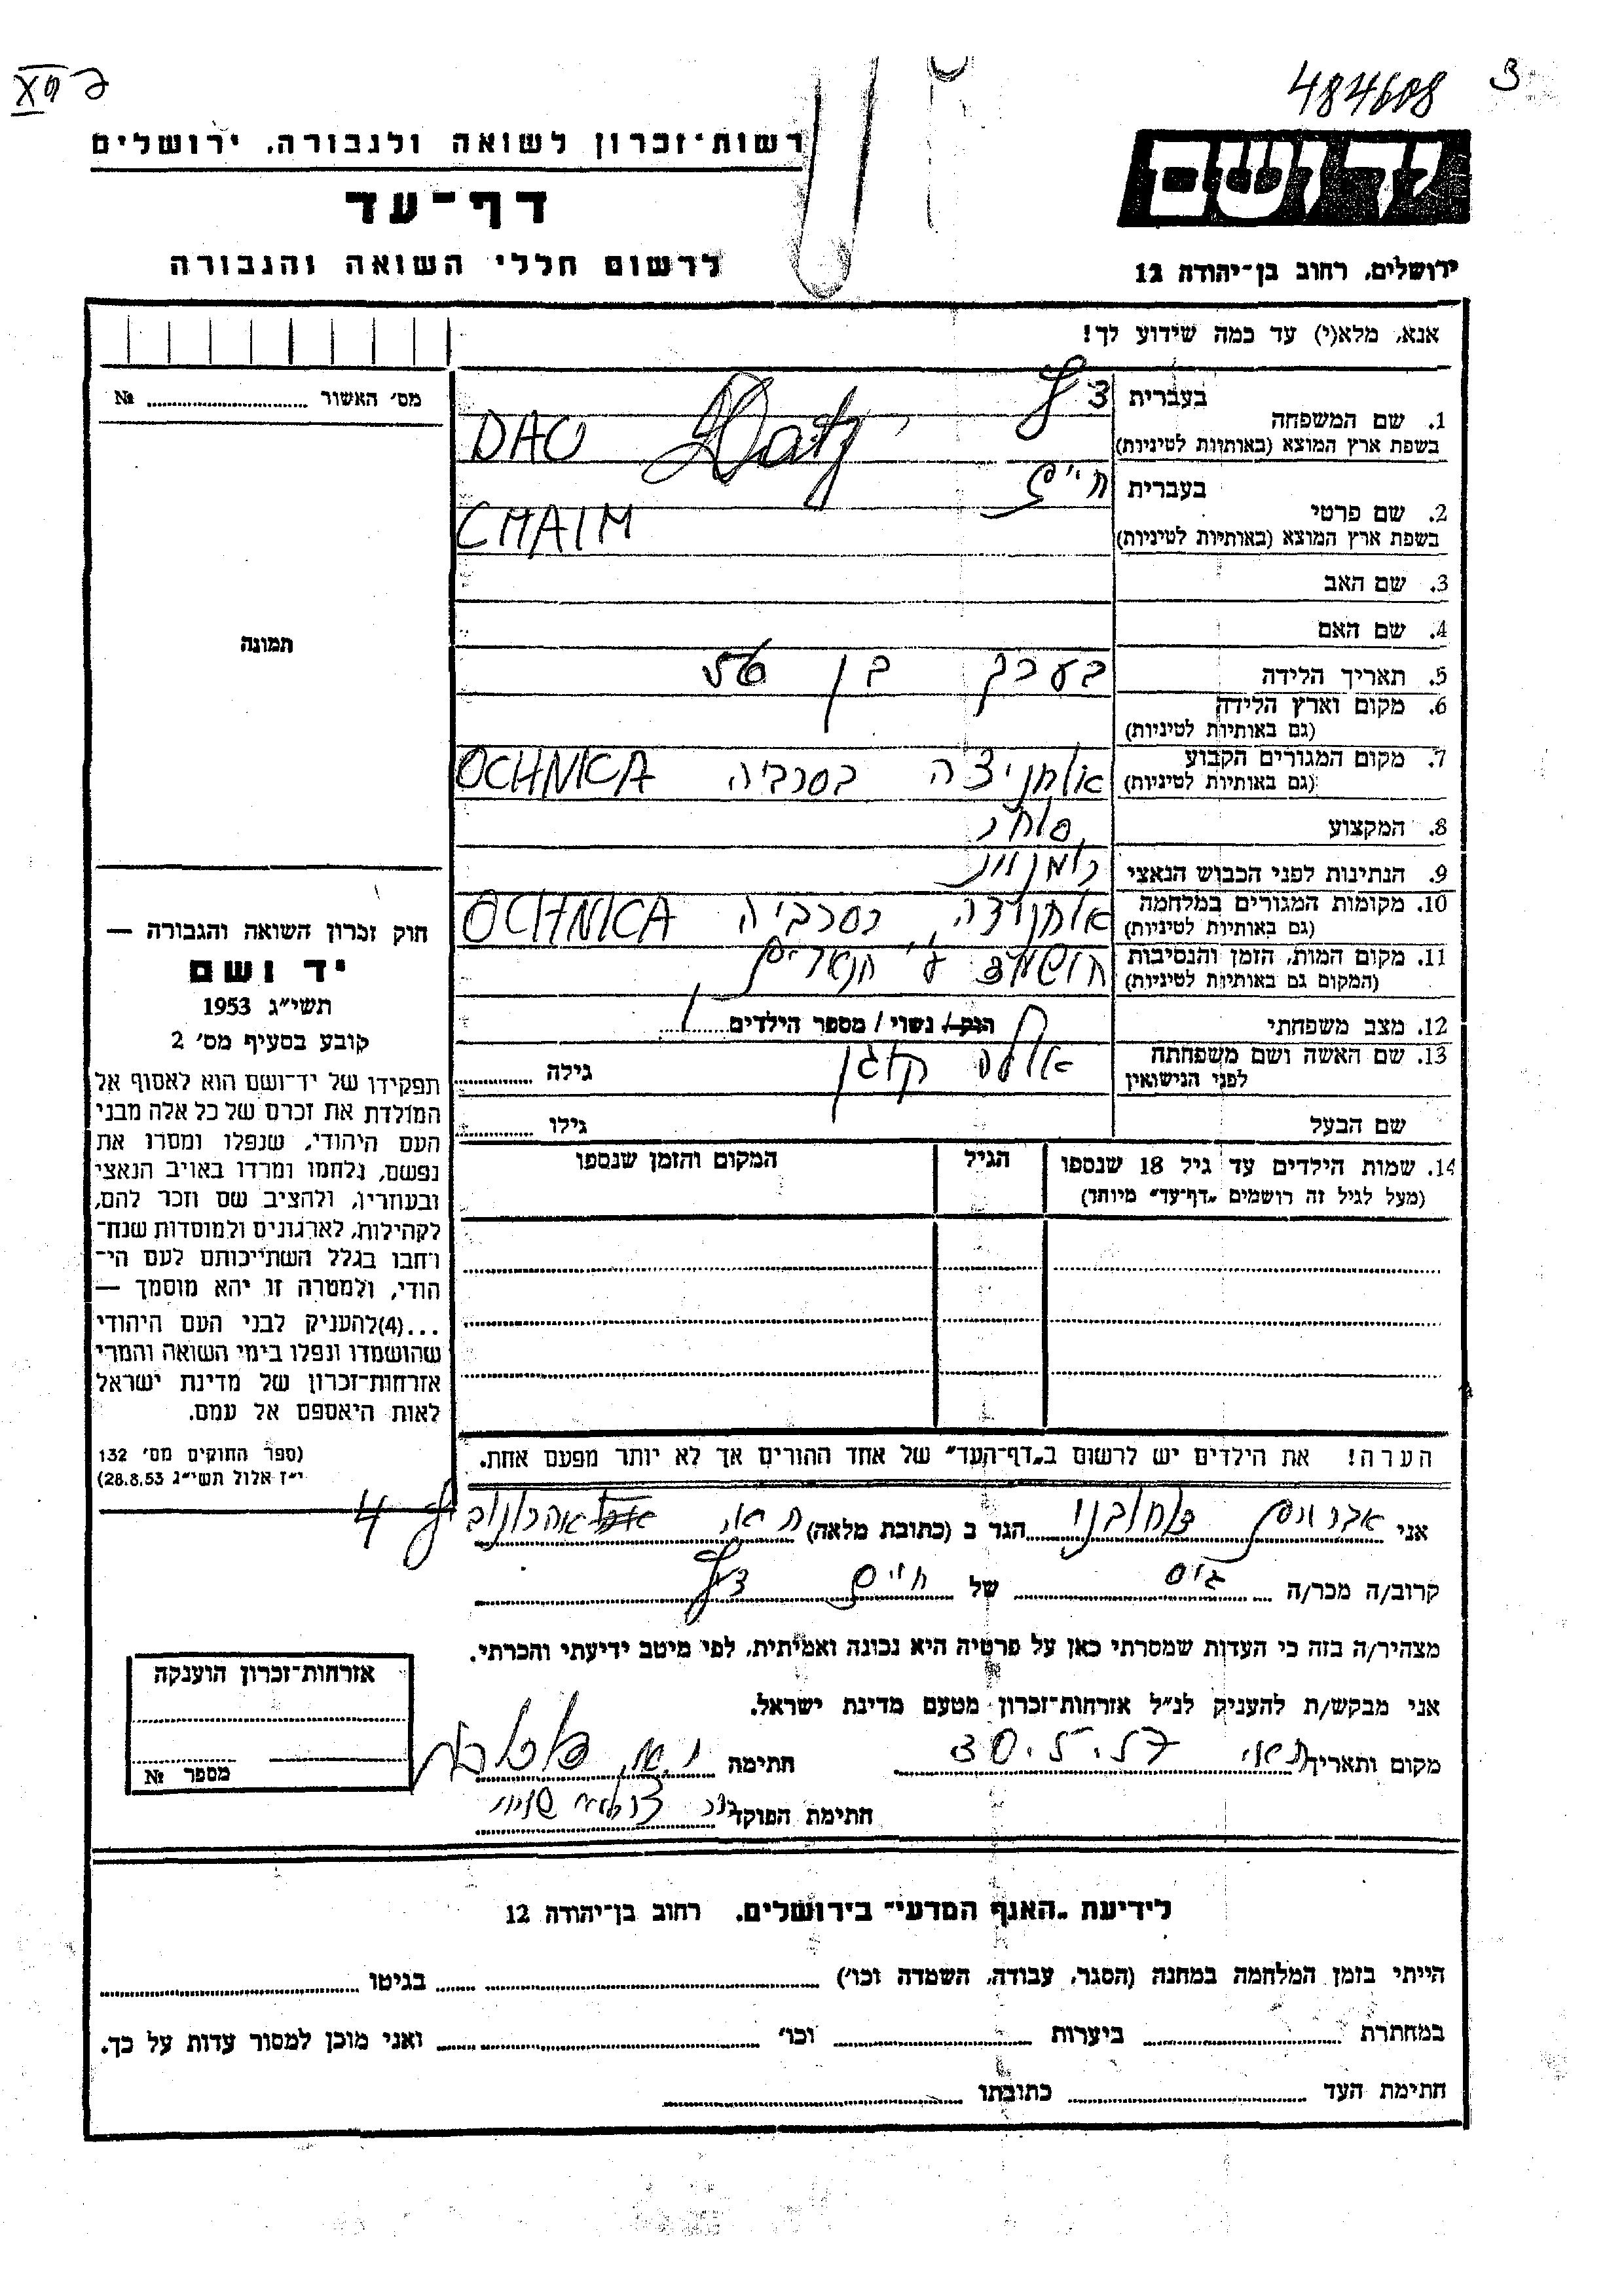 484608
רשות־זכרון לשואה ולגבורה, ירושלים
יד ושם
דף־עד
לרשום חללי השואה והגבורה
ירושלים, רחוב בן־יהודה 12
אנא, מלא(י) עד כמה שידוע לך!
מס׳ האשור № 
1. שם המשפחה
בעברית
בשפת ארץ המוצא (באותיות לטיניות) DAU Datz
2. שם פרטי
בעברית חיים
בשפת ארץ המוצא (באותיות לטיניות) CHAIM
3. שם האב
4. שם האם
תמונה
5. תאריך הלידה בערך בן
6. מקום וארץ הלידה
(גם באותיות לטיניות)
7. מקום המגורים הקבוע אוחניצה בסרביה OCHNICA
(גם באותיות לטיניות)
8. המקצוע סוחר
9. הנתינות לפני הכבוש הנאצי
10. מקומות המגורים במלחמה אוחניצה בסרביה OCHNICA
(גם באותיות לטיניות)
11. מקום המות, הזמן והנסיבות
(המקום גם באותיות לטיניות)
12. מצב משפחתי רווק / נשוי / מספר הילדים
13. שם האשה ושם משפחתה
לפני הנישואין
גילה
שם הבעל גילו
14. שמות הילדים עד גיל 18 שנספו הגיל המקום והזמן שנספו
(מעל לגיל זה רושמים „דף־עד” מיוחד)
הערה! את הילדים יש לרשום ב„דף־העד” של אחד ההורים אך לא יותר מפעם אחת.
חוק זכרון השואה והגבורה —
יד ושם
תשי״ג 1953
קובע בסעיף מס׳ 2
תפקידו של יד־ושם הוא לאסוף אל
המולדת את זכרם של כל אלה מבני
העם היהודי, שנפלו ומסרו את
נפשם, נלחמו ומרדו באויב הנאצי
ובעוזריו, ולהציב שם וזכר להם,
לקהילות, לארגונים ולמוסדות שנח־
רחבו בגלל השתייכותם לעם הי־
הודי, ולמטרה זו יהא מוסמך —
...(4)להעניק לבני העם היהודי
שהושמדו ונפלו בימי השואה והמרי
אזרחות־זכרון של מדינת ישראל
לאות היאספם אל עמם.
(ספר החוקים מס׳ 132
י״ז אלול תשי״ג 28.8.53)
אני הגר ב (כתובת מלאה) 4
קרוב/ה מכר/ה גיס של חיים
מצהיר/ה בזה כי העדות שמסרתי כאן על פרטיה היא נכונה ואמיתית, לפי מיטב ידיעתי והכרתי.
אני מבקש/ת להעניק לנ״ל אזרחות־זכרון מטעם מדינת ישראל.
מקום ותאריך 30.5.57 חתימה
חתימת הפוקד
אזרחות־זכרון הוענקה
מספר №
לידיעת „האגף המדעי” בירושלים, רחוב בן־יהודה 12
הייתי בזמן המלחמה במחנה (הסגר, עבודה, השמדה וכו׳) בגיטו
במחתרת ביערות וכו׳ ואני מוכן למסור עדות על כך.
חתימת העד כתובתו